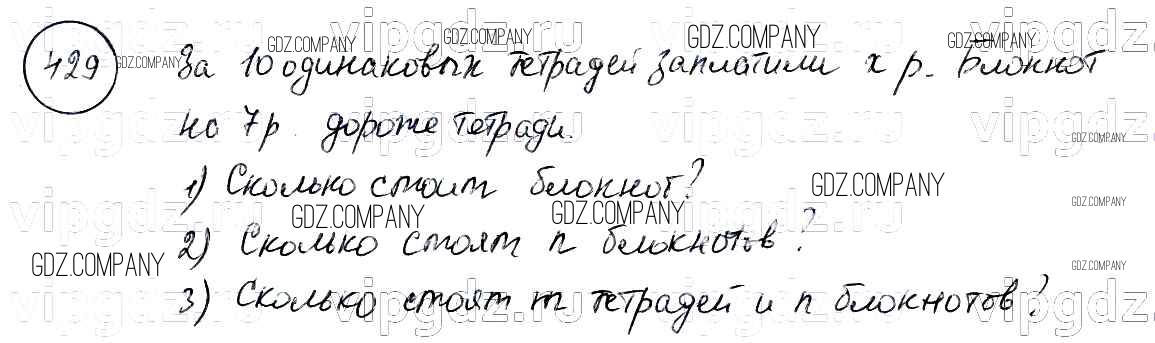 429 За 10 одинаковых тетрадей заплатили x р. Блокнот
на 7р. дороже тетради.
1) Сколько стоит блокнот?
2) Сколько стоят n блокнотов?
3) Сколько стоят m тетрадей и n блокнотов?
vipgdz.ru
GDZ.COMPANY